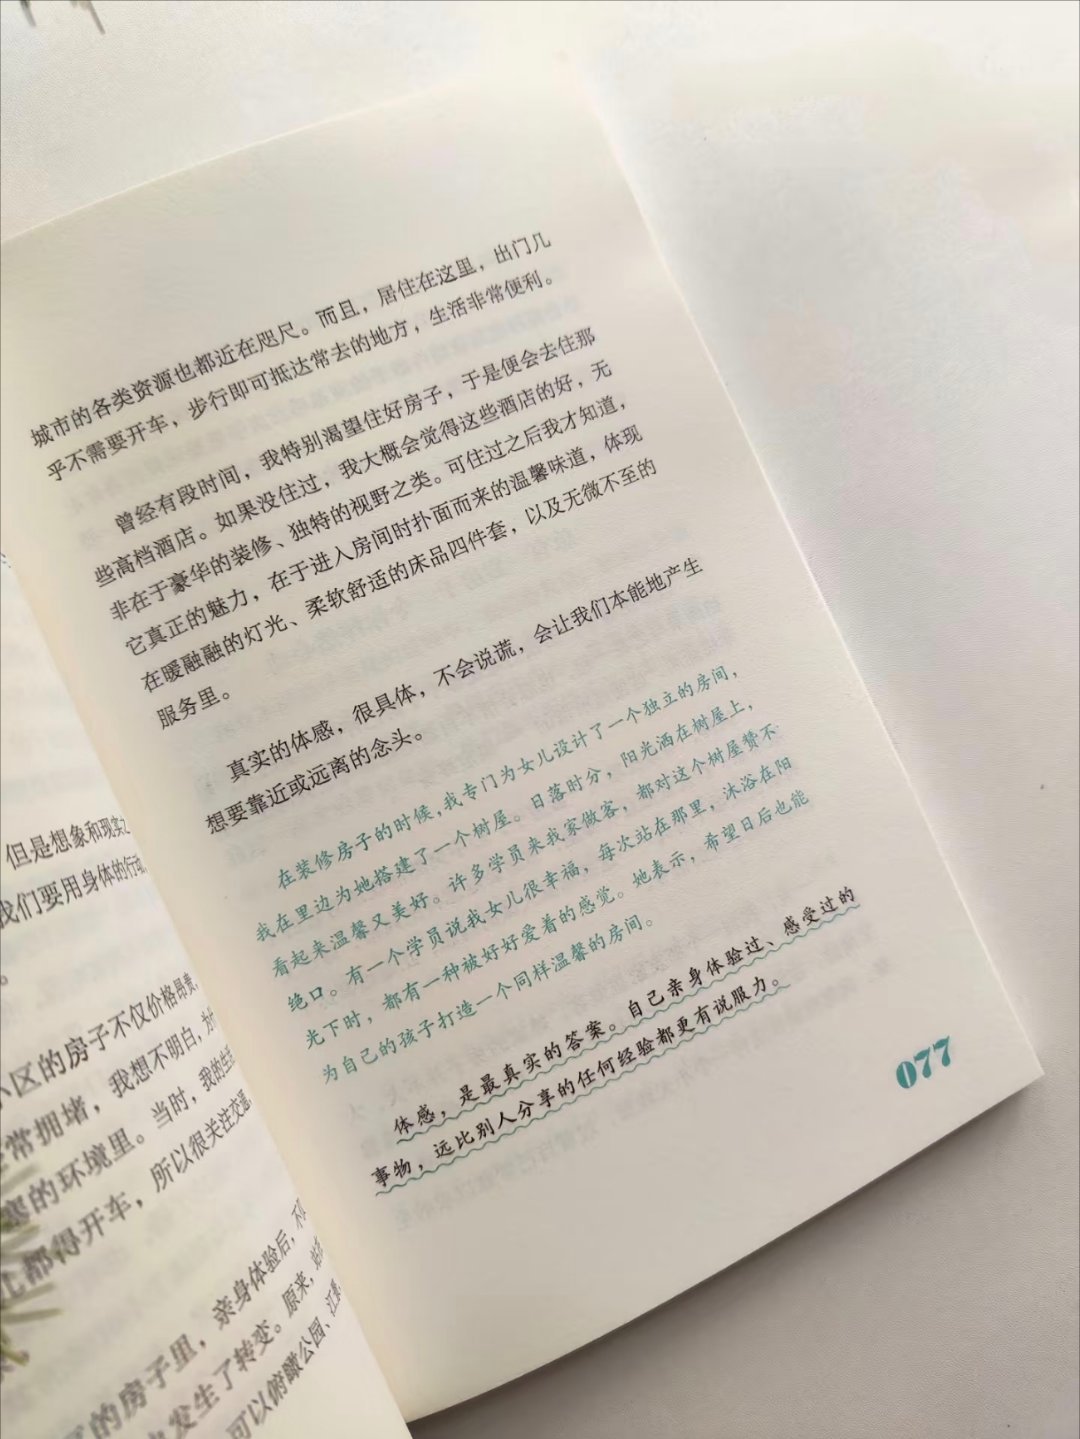 但是想象和现实之
我们要用身体的行动
小区的房子不仅价格昂贵,
常拥堵,我想不明白,为什
的环境里。当时,我的生活
儿都得开车,所以很关注交通
的房子里,亲身体验后,不
发生了转变。原来,站
可以俯瞰公园、江景
城市的各类资源也都近在咫尺。而且,居住在这里,出门几
乎不需要开车,步行即可抵达常去的地方,生活非常便利。
曾经有段时间,我特别渴望住好房子,于是便会去住那
些高档酒店。如果没住过,我大概会觉得这些酒店的好,无
非在于豪华的装修、独特的视野之类。可住过之后我才知道,
它真正的魅力,在于进入房间时扑面而来的温馨味道,体现
在暖融融的灯光、柔软舒适的床品四件套,以及无微不至的
服务里。
真实的体感,很具体,不会说谎,会让我们本能地产生
想要靠近或远离的念头。
在装修房子的时候,我专门为女儿设计了一个独立的房间,
我在里边为她搭建了一个树屋。日落时分,阳光洒在树屋上,
看起来温馨又美好。许多学员来我家做客,都对这个树屋赞不
绝口。有一个学员说我女儿很幸福,每次站在那里,沐浴在阳
光下时,都有一种被好好爱着的感觉。她表示,希望日后也能
为自己的孩子打造一个同样温馨的房间。
体感,是最真实的答案。自己亲身体验过、感受过的
事物,远比别人分享的任何经验都更有说服力。
077